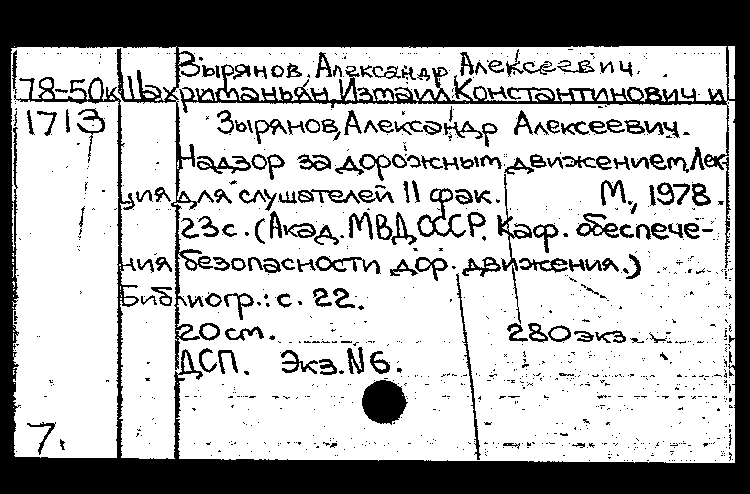 Зырянов, Александр Алексеевич.
78-50к Шахриманьян, Измаил Константинович и
1713 Зырянов, Александр Алексеевич.
Надзор за дорожным движением, Лек-
ция для слушателей II фак. М., 1978.
23с. (Акад. МВД СССР. Каф. обеспече-
ния безопасности дор. движения.)
Библиогр.: с. 22.
20см. 280экз.
ДСП. Экз. N6.
7.